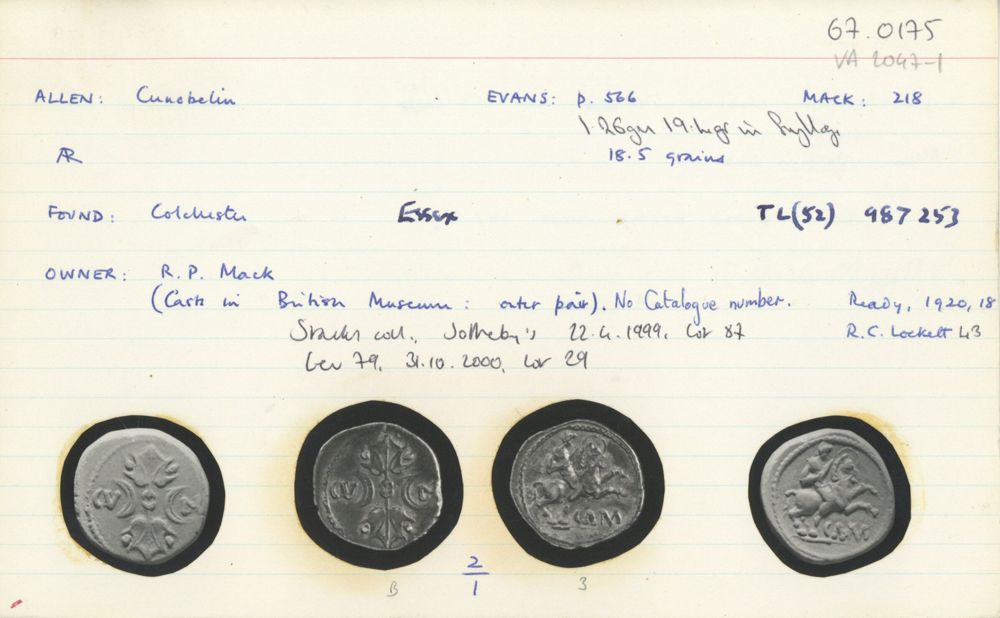 67.0175
VA 2047-1
ALLEN: Cunobelin EVANS: p. 566 MACK: 218
1.26gm 19.4gr in
AR 18.5 grains
FOUND: Colchester Essex TL(52) 987 253
OWNER: R. P. Mack
(Casts in British Museum: outer pair). No Catalogue number. Ready, 1920, 18
coll., Sotheby's 22.4.1999, lot 87 R.C. Lockett 43
Leu 79, 31.10.2000, lot 29
CV N
CV N
COM
COM
B 2/1 3